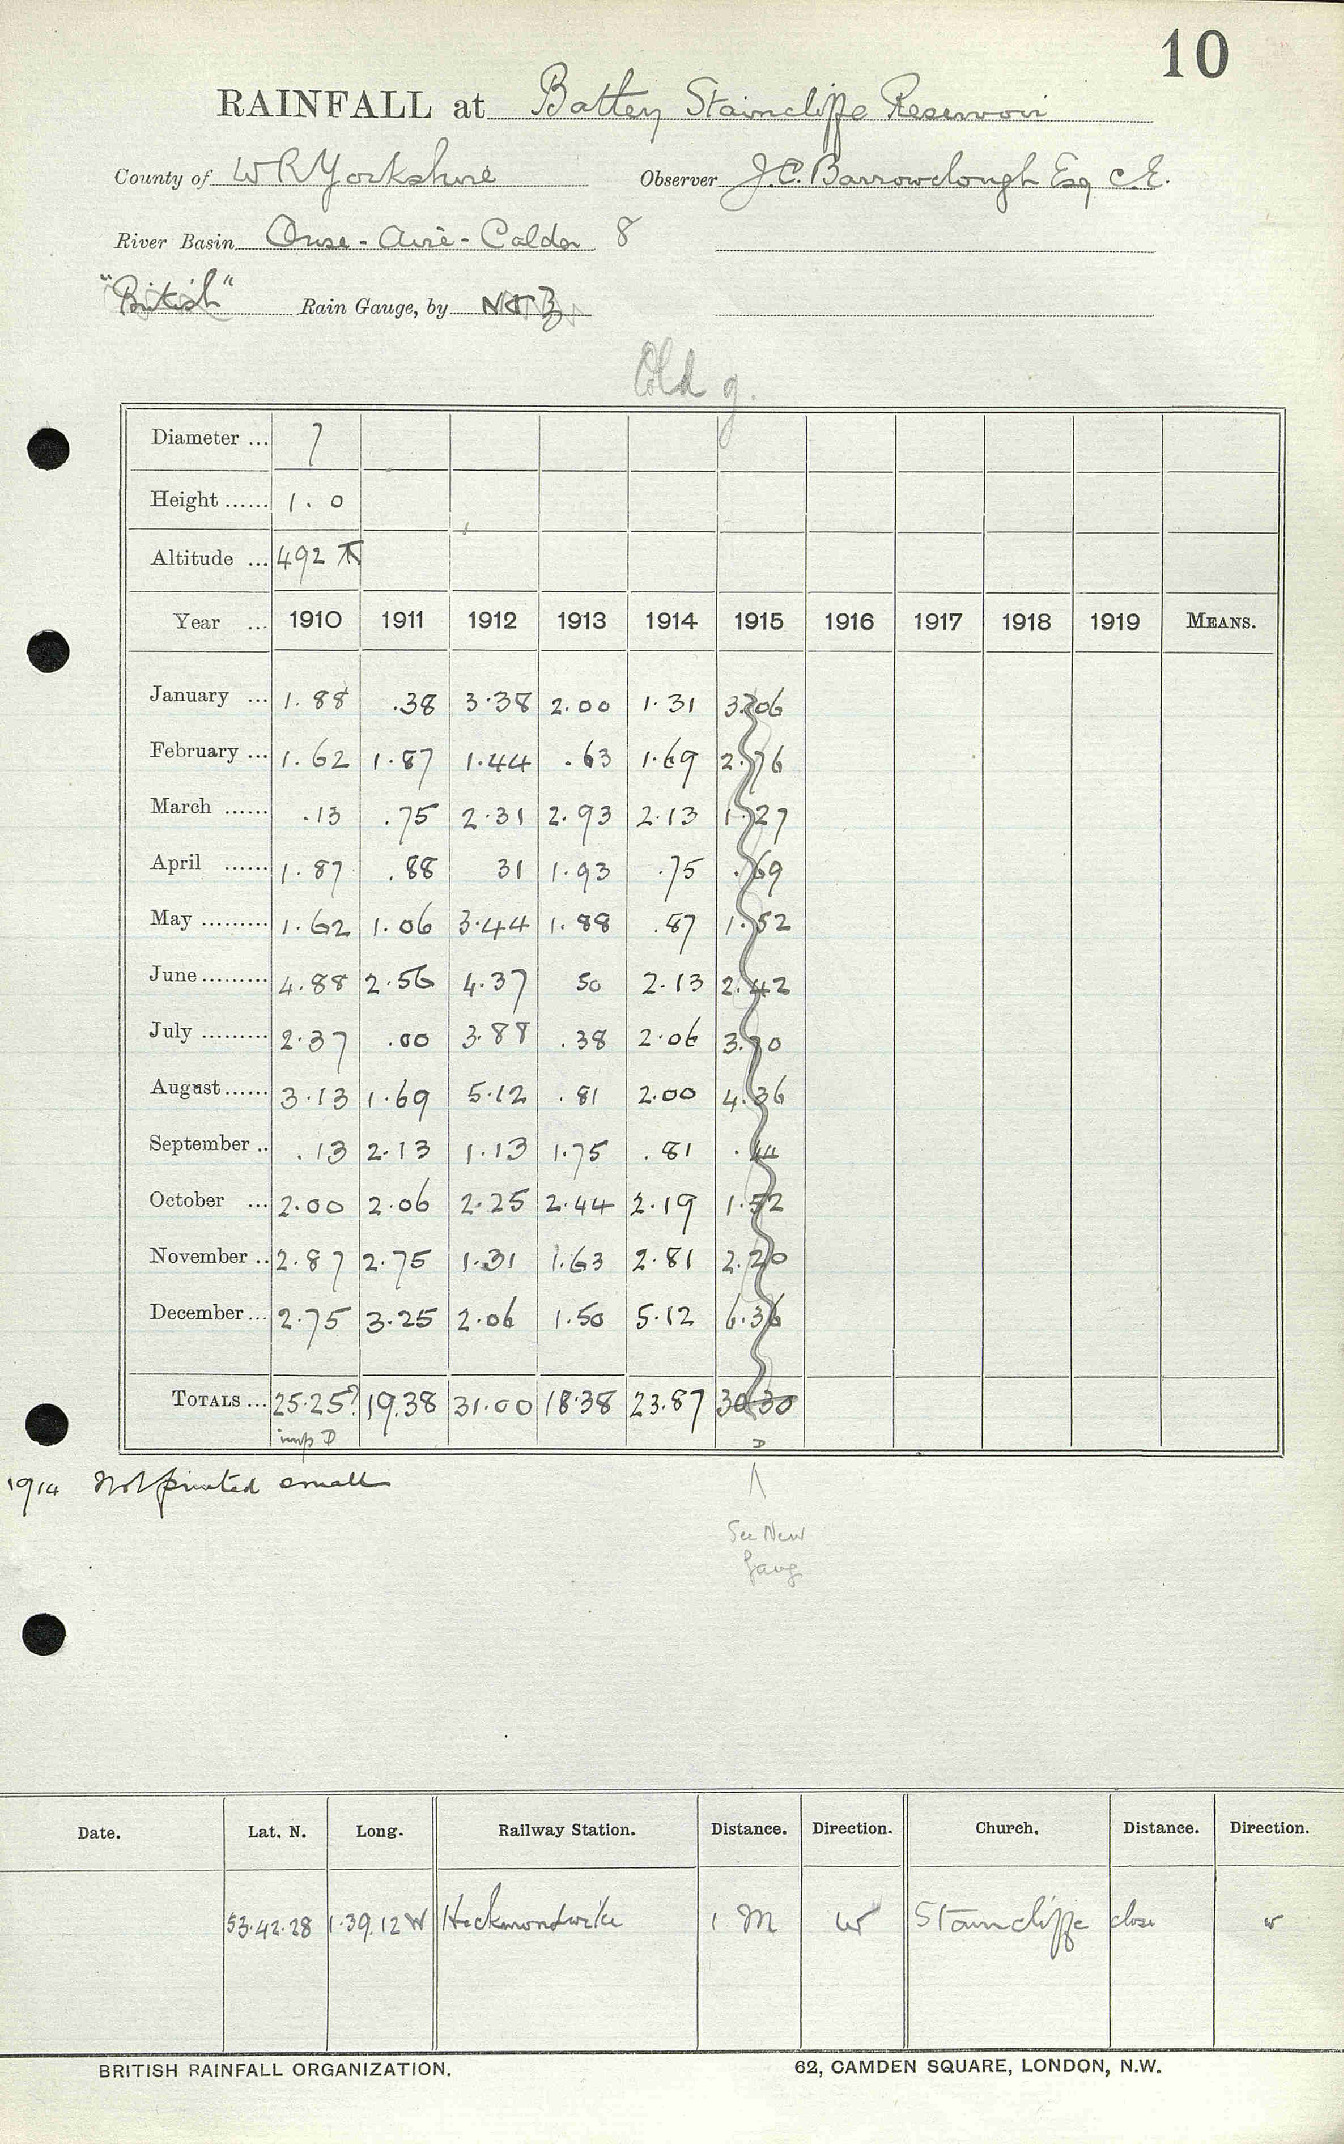 10
RAINFALL at Batley Staincliffe Reservoir
County of W R Yorkshire Observer J.C. Barrowclough Esq C.E.
River Basin Ouse - Aire - Calder 8
"British" Rain Gauge, by
Old g.
Diameter ...
Height ...... 1.0
Altitude ... 492
Year ... 1910 1911 1912 1913 1914 1915 1916 1917 1918 1919 MEANS.
January ... 1.88 .38 3.38 2.00 1.31 3.06
February ... 1.62 1.87 1.44 .63 1.69 2.76
March ...... .13 .75 2.31 2.93 2.13 1.27
April ...... 1.87 .88 31 1.93 .75 .69
May ......... 1.62 1.06 3.44 1.88 .87 1.52
June ......... 4.88 2.56 4.37 50 2.13 2.42
July ......... 2.37 .00 3.88 .38 2.06 3.70
August ...... 3.13 1.69 5.12 .81 2.00 4.36
September .. .13 2.13 1.13 1.75 .81 .44
October ... 2.00 2.06 2.25 2.44 2.19 1.52
November .. 2.87 2.75 1.31 1.63 2.81 2.20
December ... 2.75 3.25 2.06 1.50 5.12 6.36
TOTALS ... 25.25? 19.38 31.00 18.38 23.87 30.30
imp D D
1914 Not printed small
See New
Gaug
Date. Lat. N. Long. Railway Station. Distance. Direction. Church. Distance. Direction.
53.42.28 1.39.12 W Heckmondwike 1 M W Staincliffe close W
BRITISH RAINFALL ORGANIZATION. 62, CAMDEN SQUARE, LONDON, N.W.